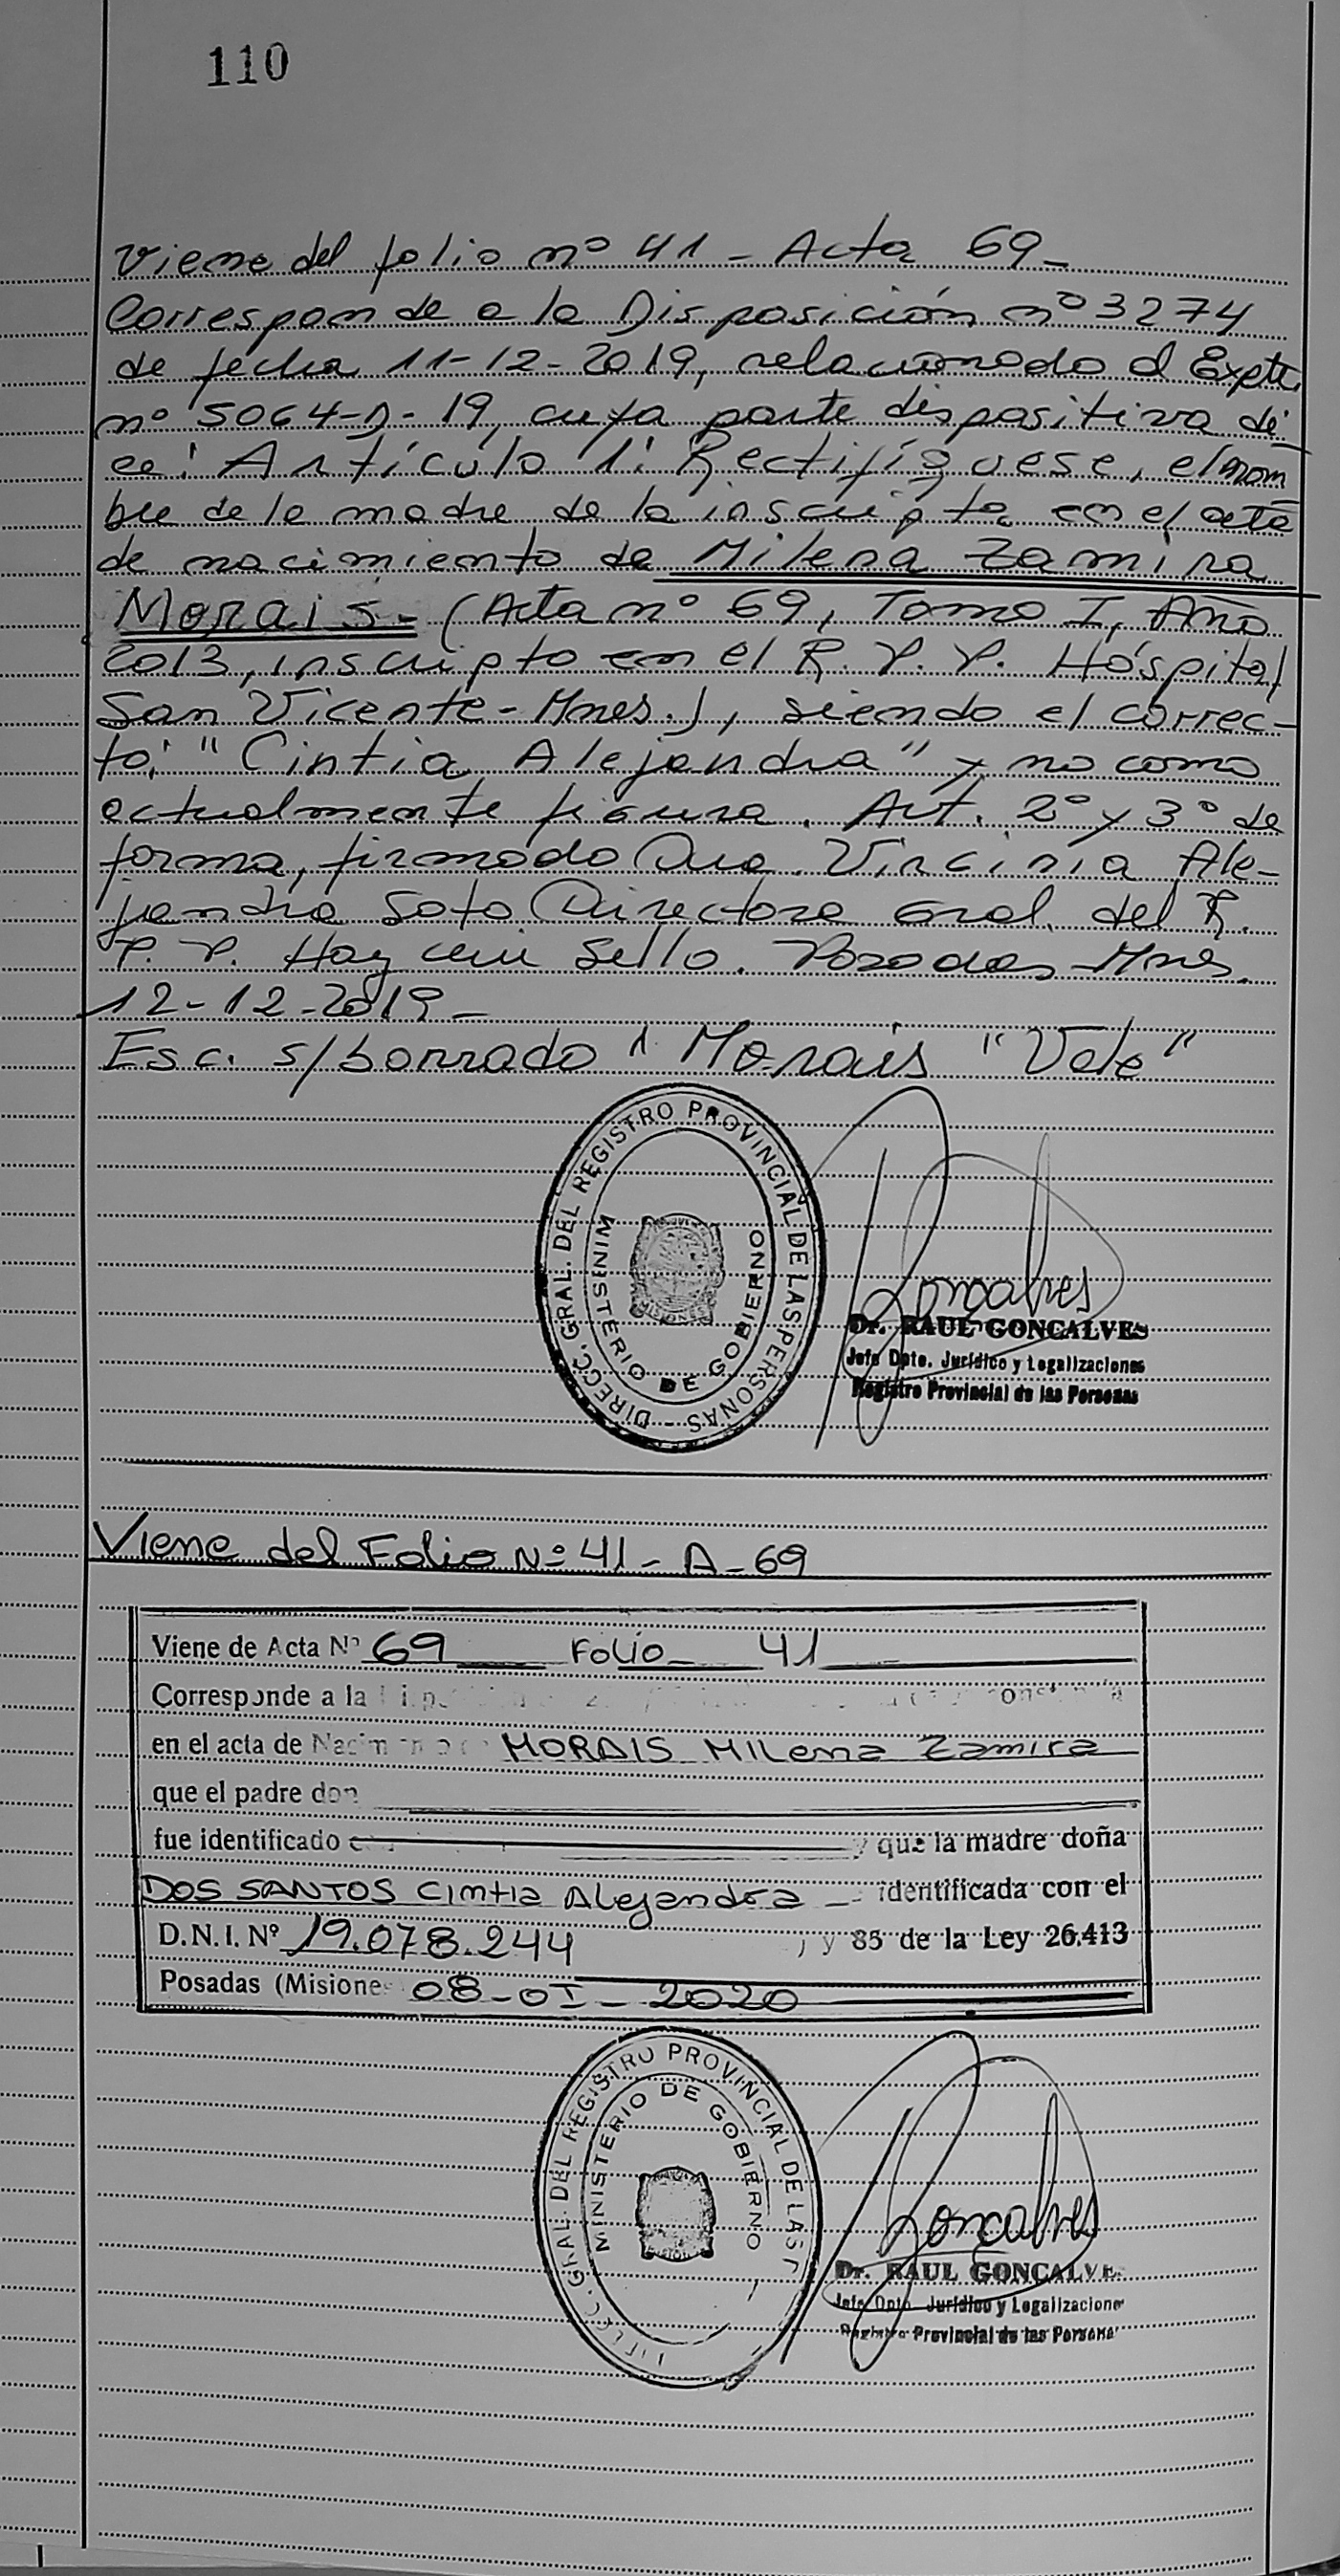 110
Viene del folio nº 41 - Acta 69_
Corresponde a la Disposición nº 3274
de fecha 11-12-2019, relacionado al Expte.
nº 5064-D-19, cuya parte dispositiva di-
ce: Artículo 1: Rectifíquese, el nom
bre de la madre de la inscripta en el acta
de nacimiento de Milena Zamira
Morais- (Acta nº 69, Tomo I, Año
2013, inscripto en el R. P. P. Hospital
San Vicente-Mnes.), siendo el correc-
to: "Cintia Alejandra" y no como
actualmente figura. Art. 2º y 3º de
forma, firmado Dra. Virginia Ale-
jandra Soto Directora Gral. del R.
P. P. Hay un Sello. Posadas - Mnes.
12-12-2019_
Esc. s/borrado "Morais" "Vale"
DIRECC. GRAL. DEL REGISTRO PROVINCIAL DE LAS PERSONAS -
MINISTERIO DE GOBIERNO
Goncalves
Dr. RAUL GONCALVES
Jefe Dpto. Jurídico y Legalizaciones
Registro Provincial de las Personas
Viene del Folio Nº 41 - A - 69
Viene de Acta Nº 69 Folio 41
Corresponde a la
en el acta de MORAIS Milena Zamira
que el padre don
fue identificado y que la madre doña
DOS SANTOS Cintia Alejandra - identificada con el
D.N.I. Nº 19.078.244 y 85 de la Ley 26.413
Posadas (Misiones 08-01-2020
DIRECC. GRAL. DEL REGISTRO PROVINCIAL DE LAS P
MINISTERIO DE GOBIERNO
Goncalves
Dr. RAUL GONCALVE
Jefe Dpto. Jurídico y Legalizacione
Registro Provincial de las Persona